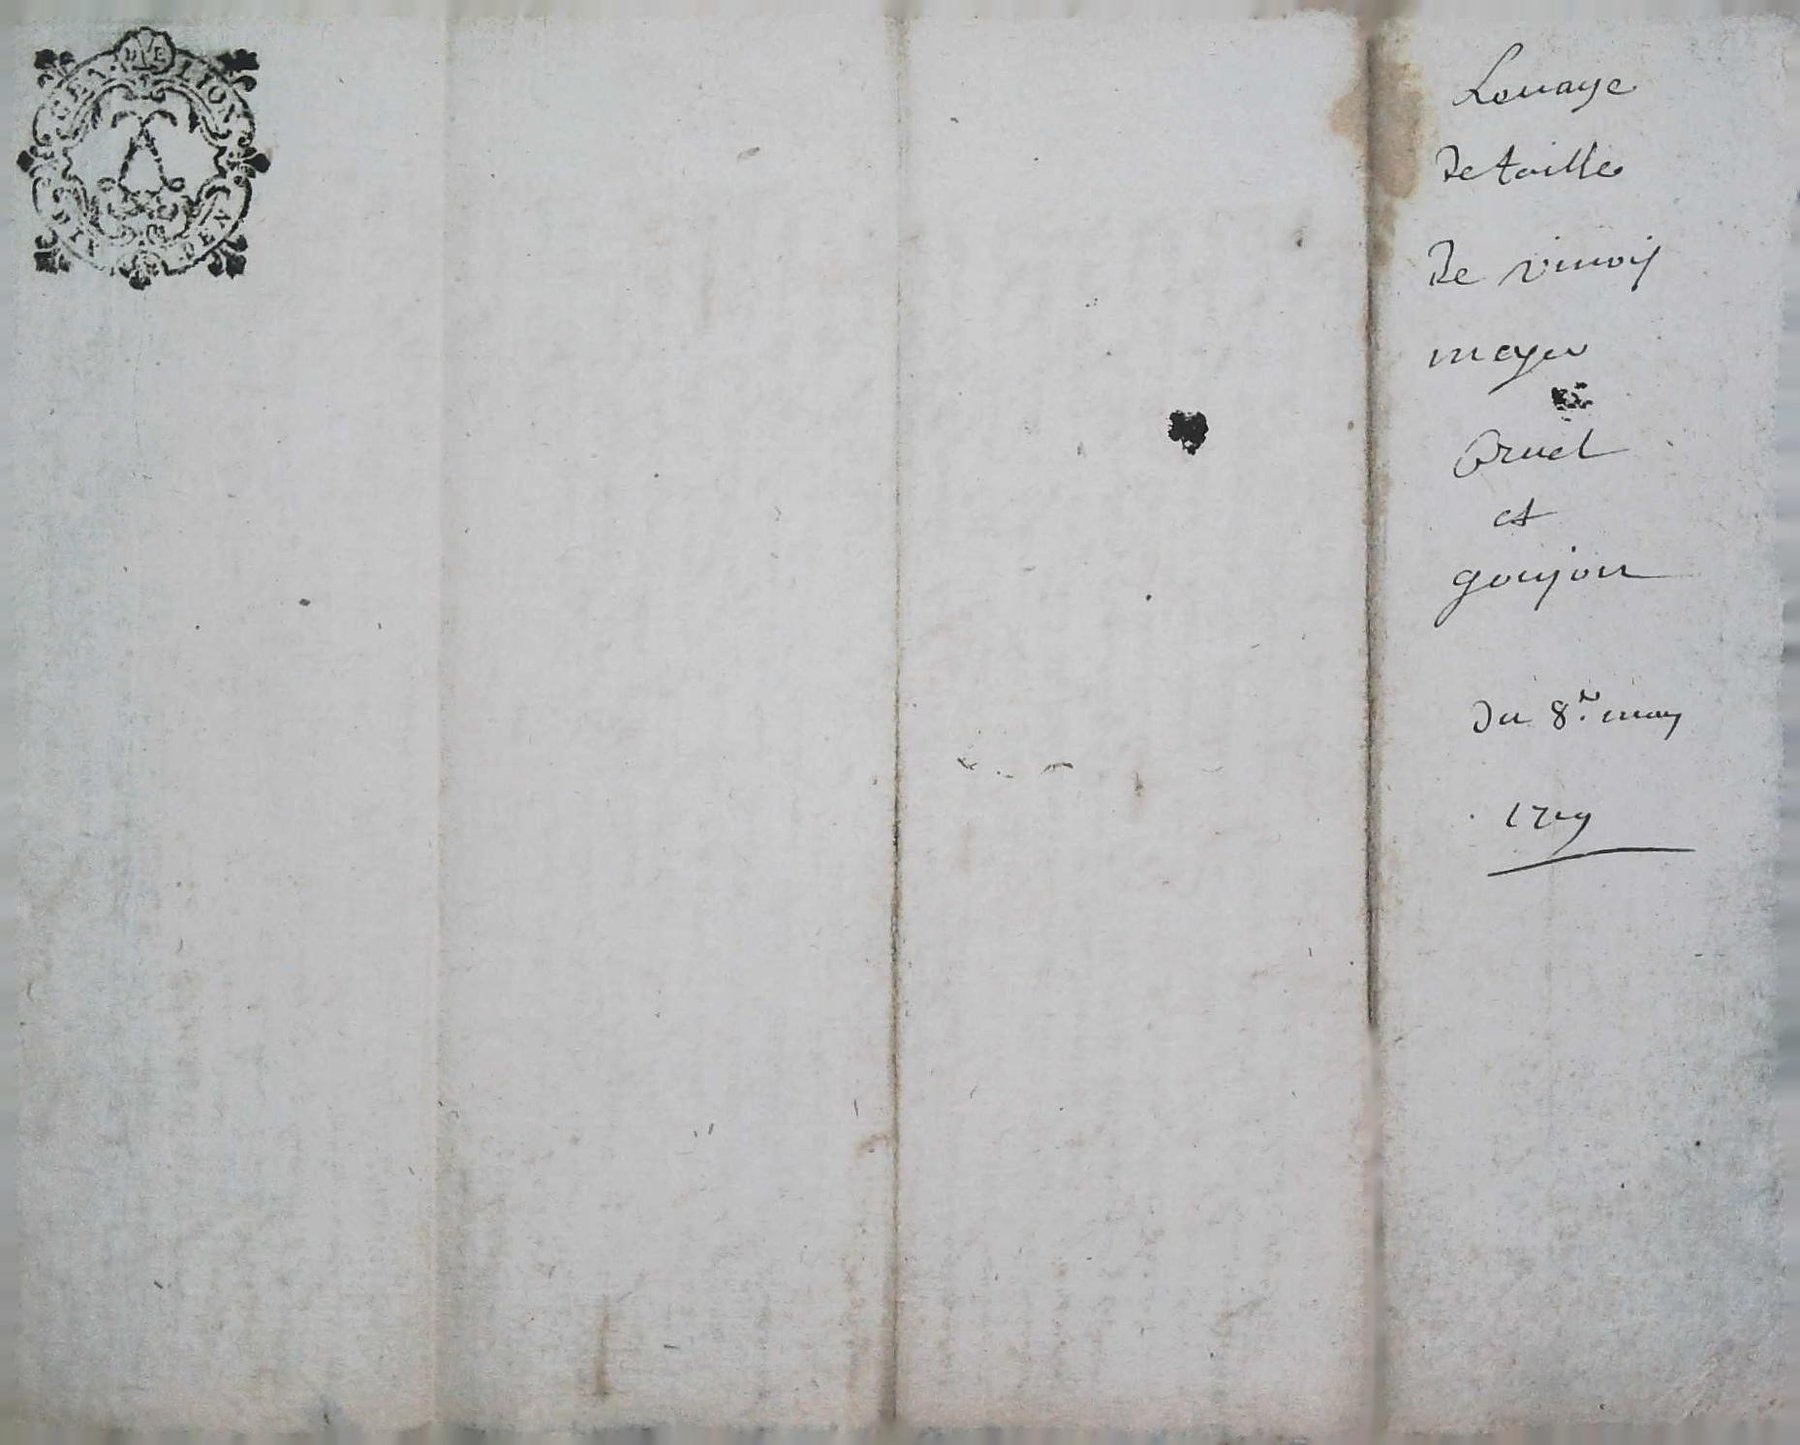 GEN. DE LION
SIX DEN
Louaye
de taille
de vinoij
meyer
Bruel
et
goujon
Du 8.e may
1729